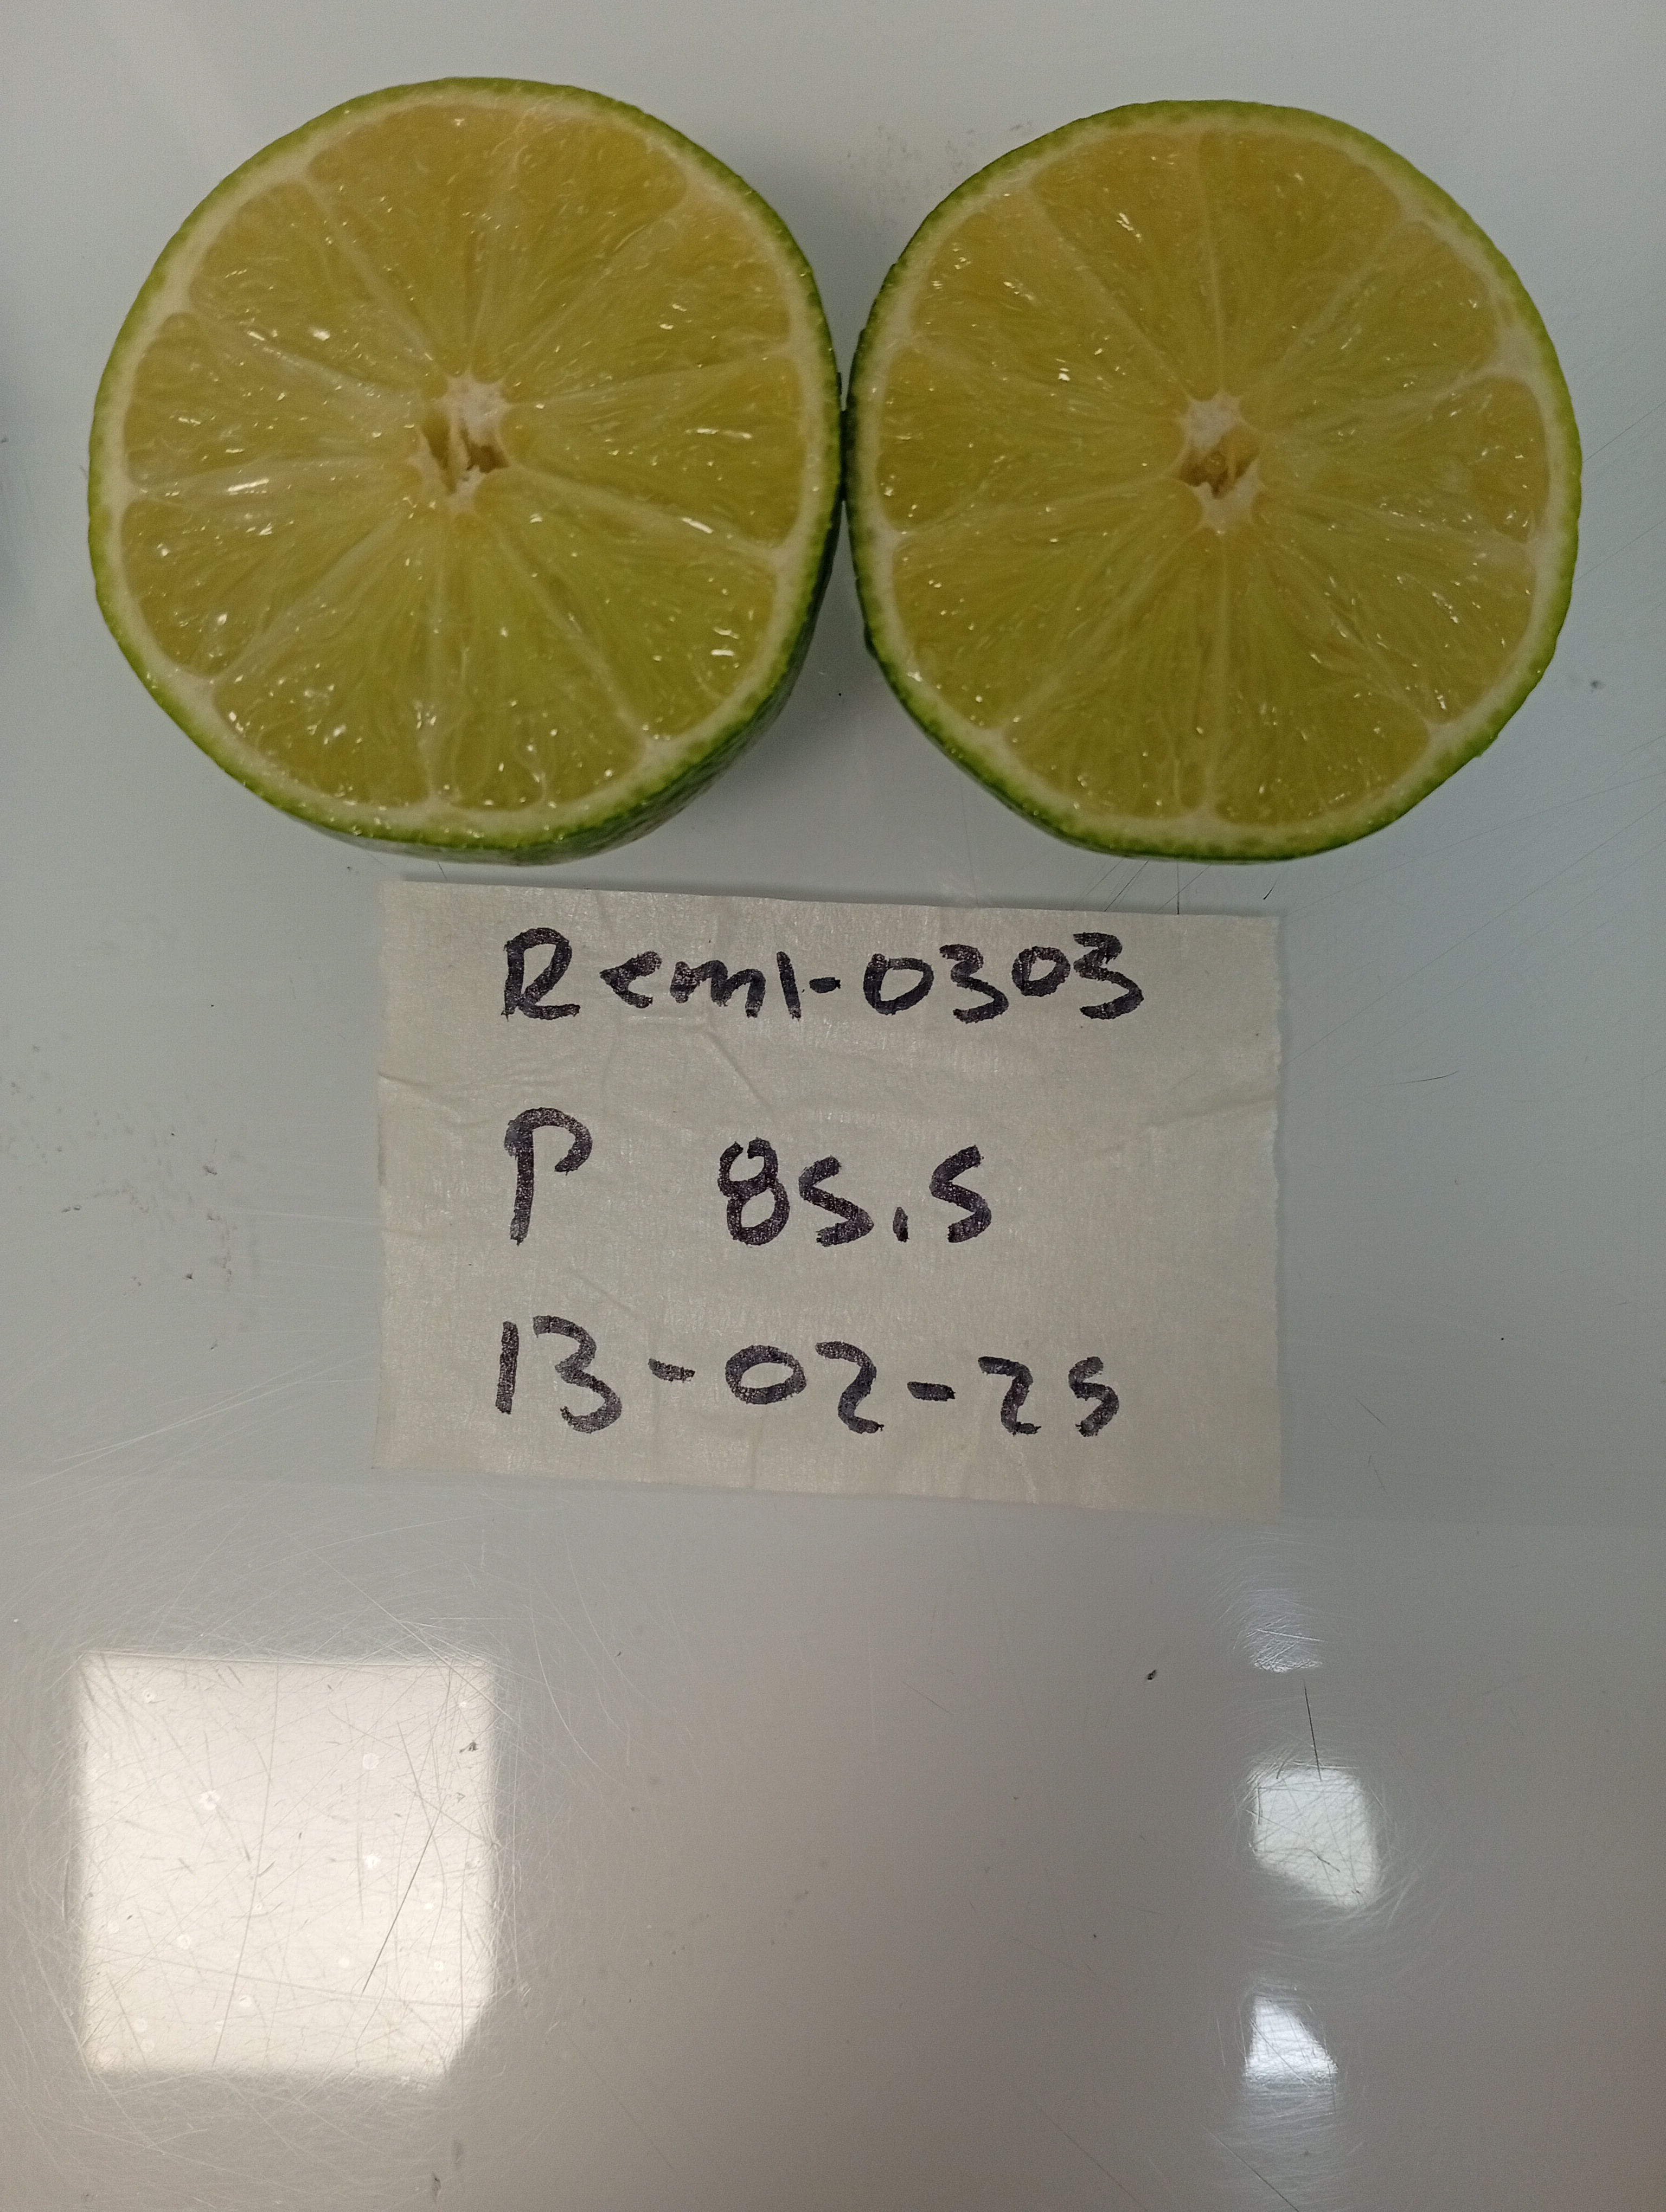 Reml-0303
P 85.5
13-02-25